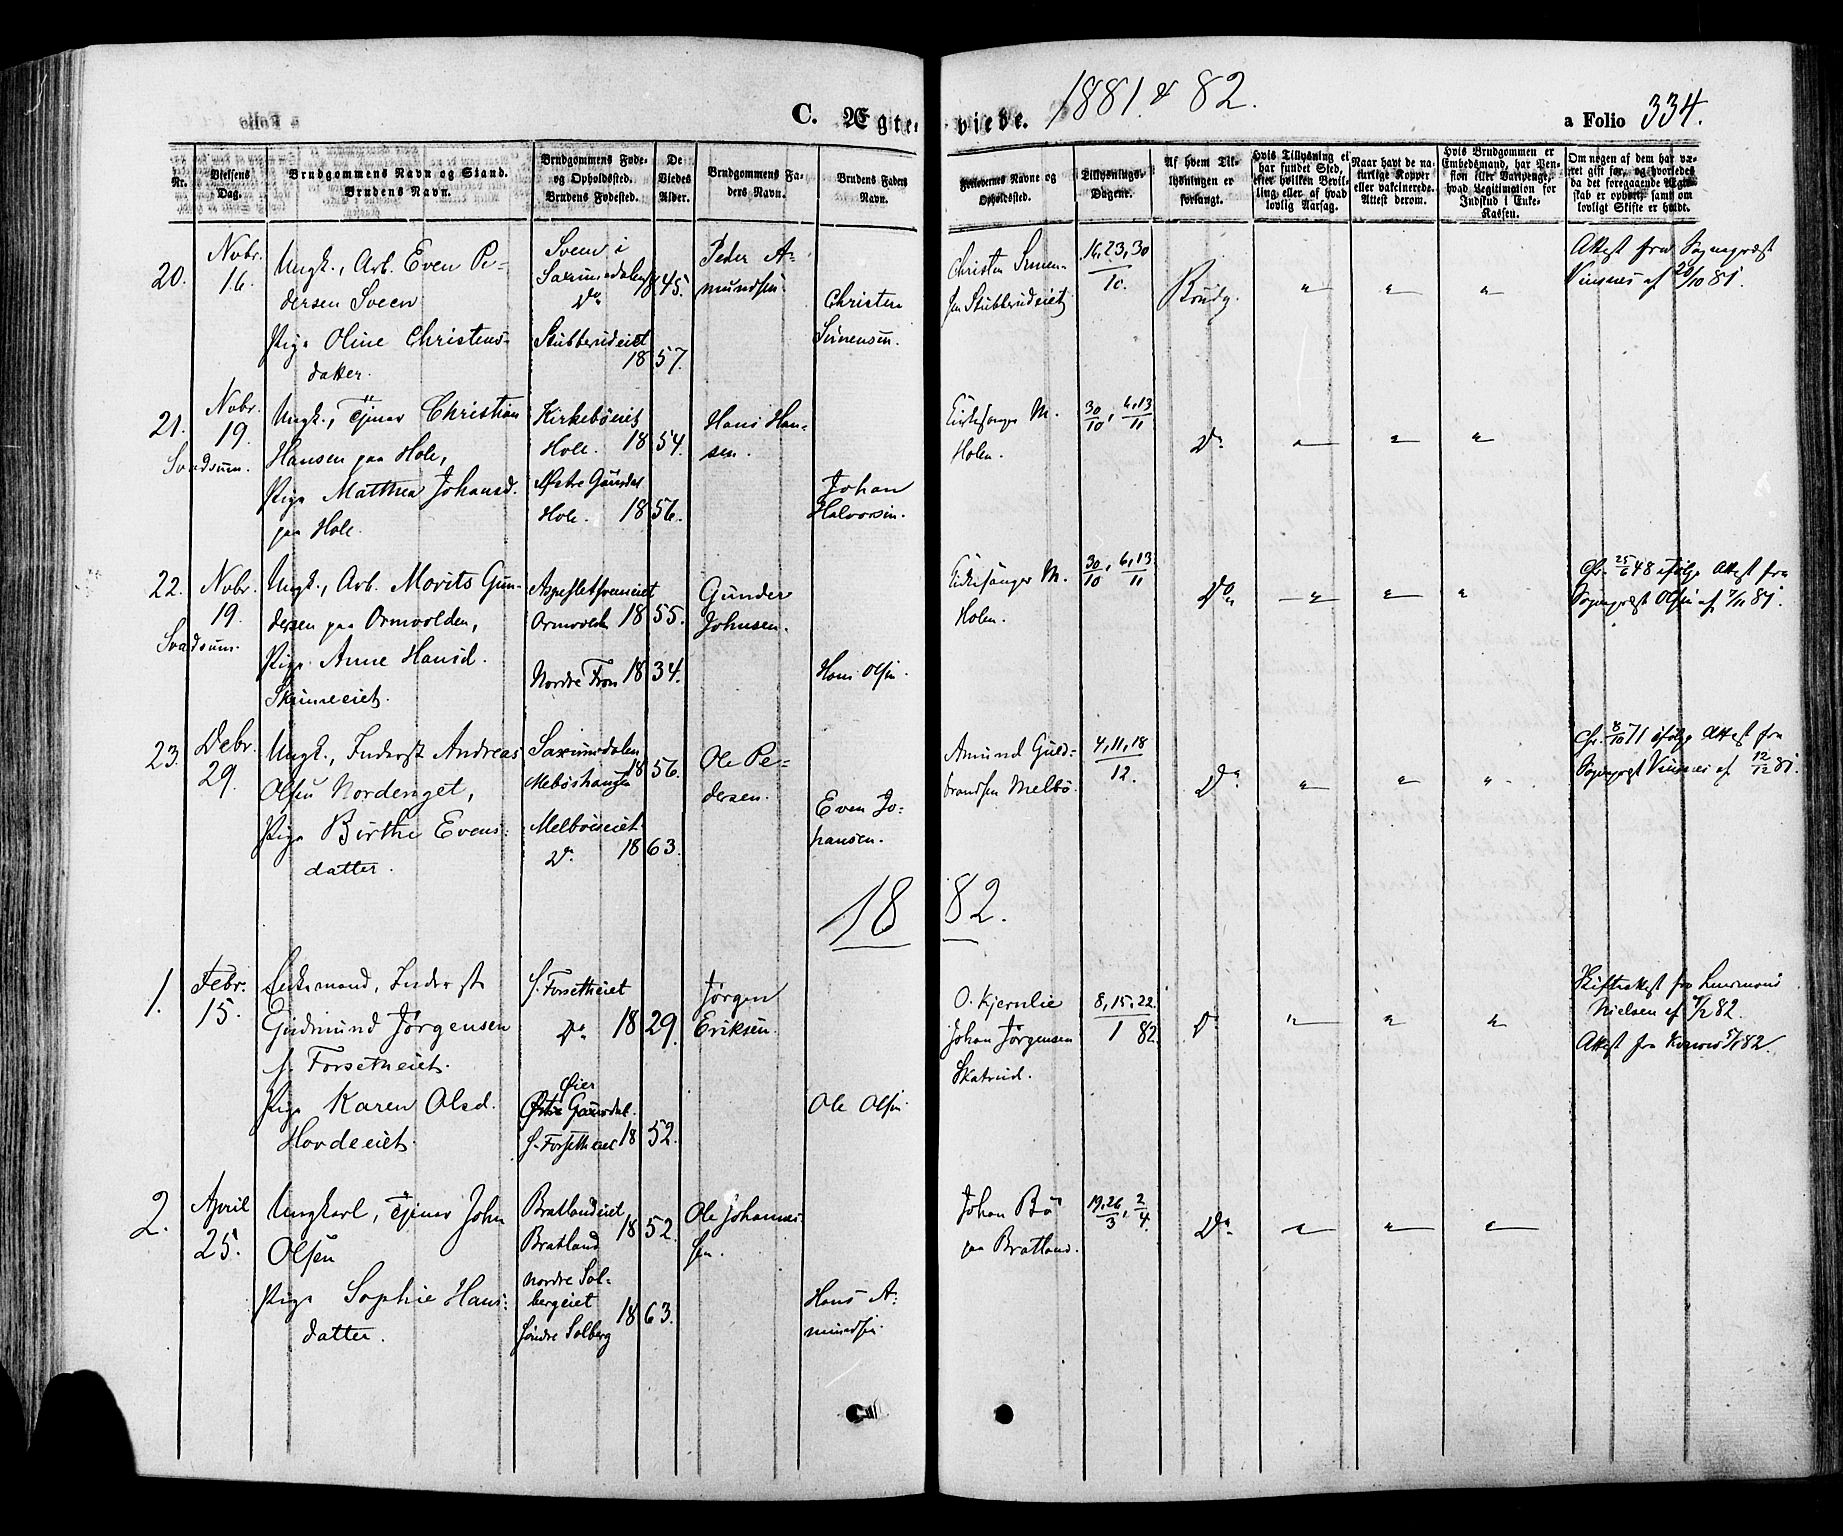 1881 & 82.
C. Ægteviede.
a Folio 334.
Nr.
Vielsens Dag.
Brudgommens Navn og Stand. Brudens Navn.
Brudgommens Føde- og Opholdssted. Brudens Fødested.
De Viedes Alder.
Brudgommens Faders Navn.
Brudens Faders Navn.
Forlovernes Navne og Opholdssted.
Tillysnings-Dagene.
Af hvem Tillysningen er forlangt.
Hvis Tillysning ei har fundet Sted, efter hvilken Bevilling eller af hvad lovlig Aarsag.
Naar havt de naturlige Kopper eller vakcinerede. Attest derom.
Hvis Brudgommen er Embedsmand, har Pension eller Vartpenge, hvad Legitimation for Indskud i Enke-Kassen.
Om nogen af dem har været gift før, og hvorledes da det foregaaende Ægteskab er ophørt, samt om lovligt Skifte er holdt.
20.
Novbr. 16.
Ungk., Arb. Even Pe-
dersen Sveen
Pige Oline Christens-
datter.
Sveen i
Saxumsdalen 1845.
Do
Stubberudeiet
1857.
Peder A-
mundsen.
Christen
Sörensen.
Christen Sören-
sen Stubberudeiet
16, 23, 30
/10
Brudg.
" " "
Attest fra Sogneprest
Vinsnes af 20/10 81.
21.
Novbr. 19.
Svadsum.
Ungk., Tjener Christian
Hansen paa Hole,
Pige Matthea Johansd.
paa Hole.
Kirkeböeiet
Hole. 1854.
Østre Gausdal
Hole. 1856.
Hans Han-
sen.
Johan
Halvorsen.
Kirkesanger M.
Holen.
30/10, 6,13/11
Do
" " "
22.
Novbr. 19.
Svadsum.
Ungk., Arb. Morits Gun-
dersen paa Ormvolden,
Pige Anne Hansd.
Skimeeiet.
Ormvolden 1855.
Nordre Fron 1834.
Gunder
Johnsen.
Hans Olsen.
Kirkesanger M.
Holen.
30/10, 6,13/11
Do
" " "
Cfr. 25/6 48 ifølge Attest fra
Sogneprest Olsen af 7/11 81.
23.
Debr. 29.
Ungk., Inderst Andreas
Olsen Nordenget,
Pige Birthe Evens-
datter.
Saxumsdalen
1856.
Melböshaugen
Melböeiet
Do 1863.
Ole Pe-
dersen.
Even Jo-
hansen.
Amund Guld-
brandsen Melbö.
4, 11, 18
12.
Do
" " "
Cfr. 8/10 71 ifølge Attest fra
Sogneprest Vinsnes af 12/12 81.
1882.
1.
Febr. 15.
Enkemand, Inderst
Gudmund Jørgensen
s. Forsetheiet.
Pige Karen Olsd.
Hovdeeiet.
S. Forsetheiet
Do 1829.
Øier
Østre Gausdal.
S. Forsetheiet 1852.
Jørgen
Eriksen.
Ole Olsen
O. Kjernlie
Johan Jørgensen
Skatrud.
8, 15, 22
1 82.
Do
" " "
Skifteattest fra Lensmand
Nielsen af 4/2 82.
2.
April 25.
Ungkarl, Tjener John
Olsen
Pige Sophie Hans-
datter.
Bratlandeiet
Bratland 1852.
Nordre Sol-
bergeiet
1863.
Söndre Solberg
Ole Johannes-
sen.
Hans A-
mundsen.
Johan Bö
paa Bratland.
19,26/3, 2/4.
Do
" " "